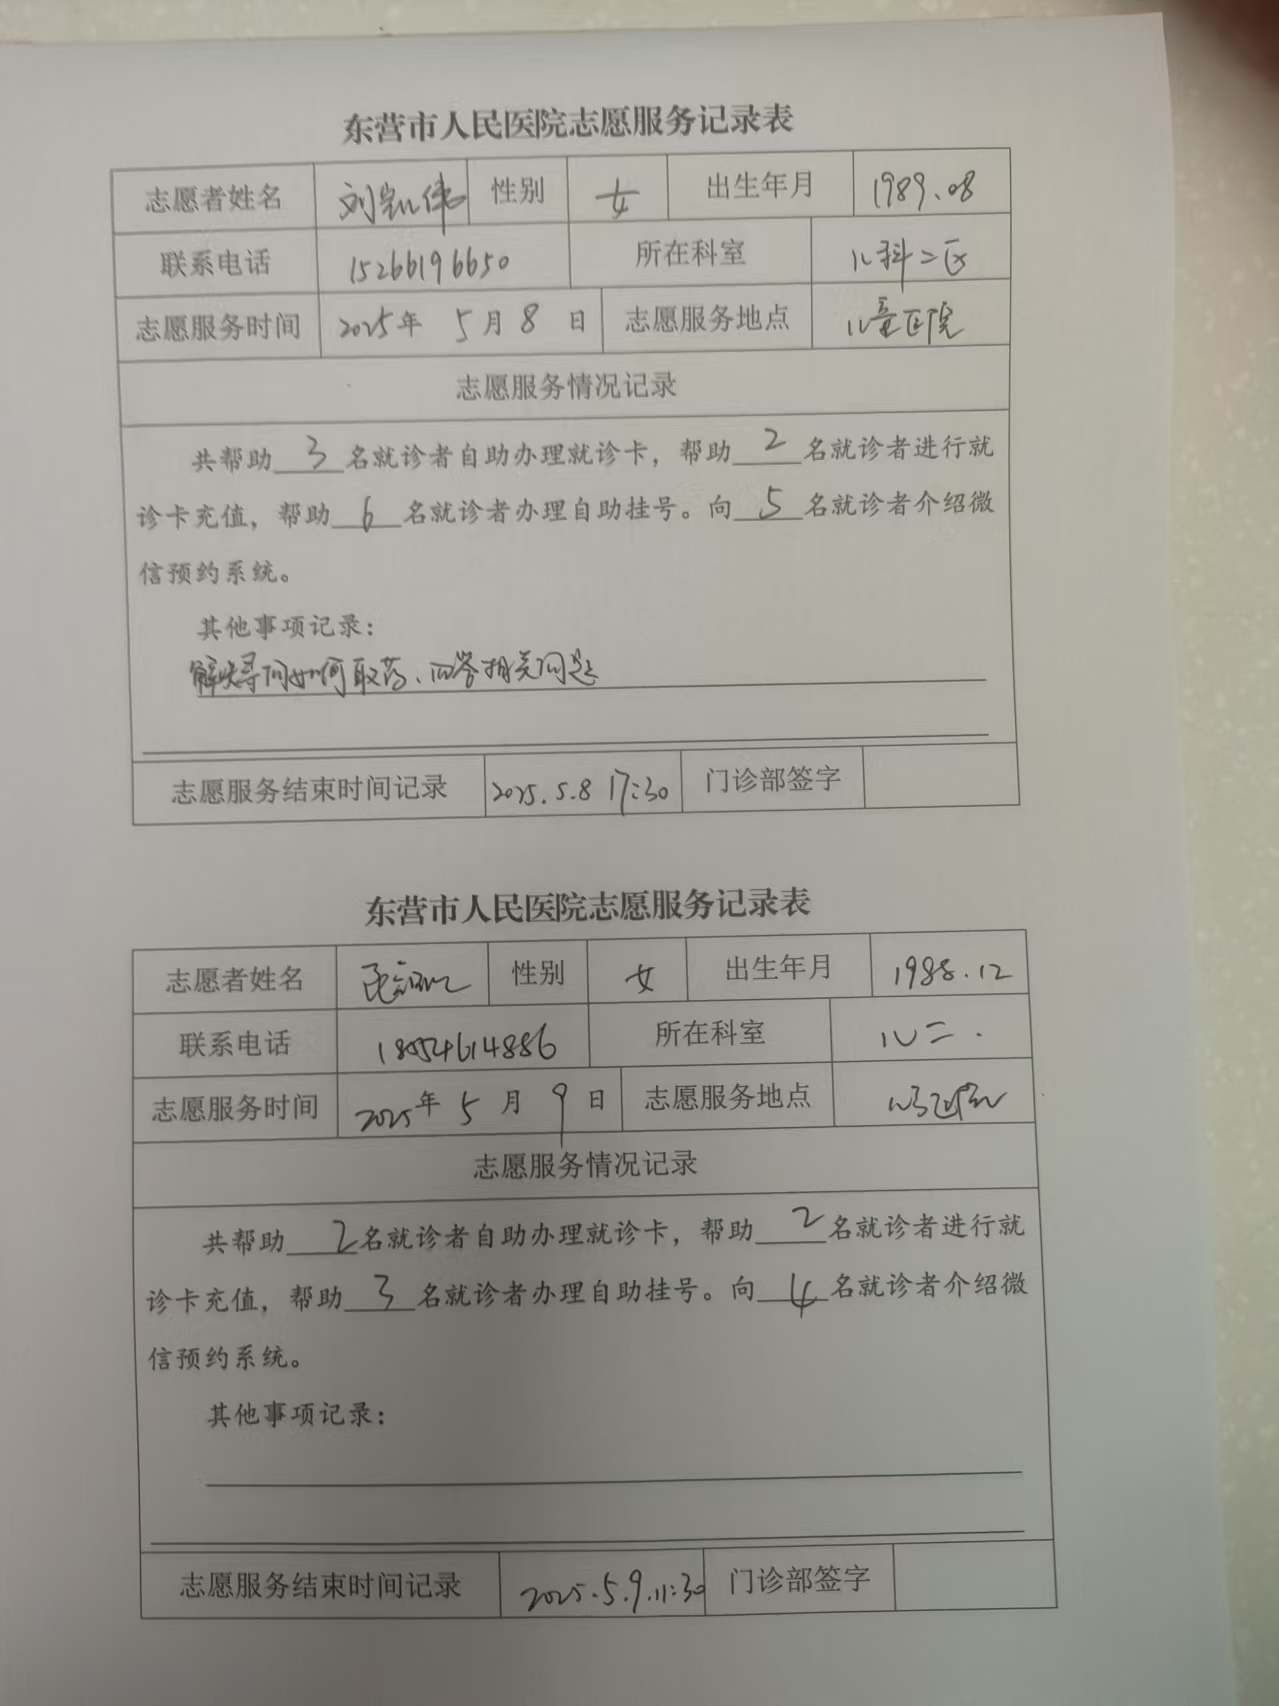 东营市人民医院志愿服务记录表
志愿者姓名 刘凯伟 性别 女 出生年月 1989.08
联系电话 15266196650 所在科室 儿科二区
志愿服务时间 2025年 5月8日 志愿服务地点 儿童医院
志愿服务情况记录
共帮助3名就诊者自助办理就诊卡，帮助2名就诊者进行就
诊卡充值，帮助6名就诊者办理自助挂号。向5名就诊者介绍微
信预约系统。
其他事项记录：
解决寻问如何取药、回答相关问题
志愿服务结束时间记录 2025.5.8 17:30 门诊部签字
东营市人民医院志愿服务记录表
志愿者姓名 性别 女 出生年月 1988.12
联系电话 18954614886 所在科室 儿二.
志愿服务时间 2025年5月9日 志愿服务地点
志愿服务情况记录
共帮助2名就诊者自助办理就诊卡，帮助2名就诊者进行就
诊卡充值，帮助3名就诊者办理自助挂号。向4名就诊者介绍微
信预约系统。
其他事项记录：
志愿服务结束时间记录 2025.5.9.11:30 门诊部签字